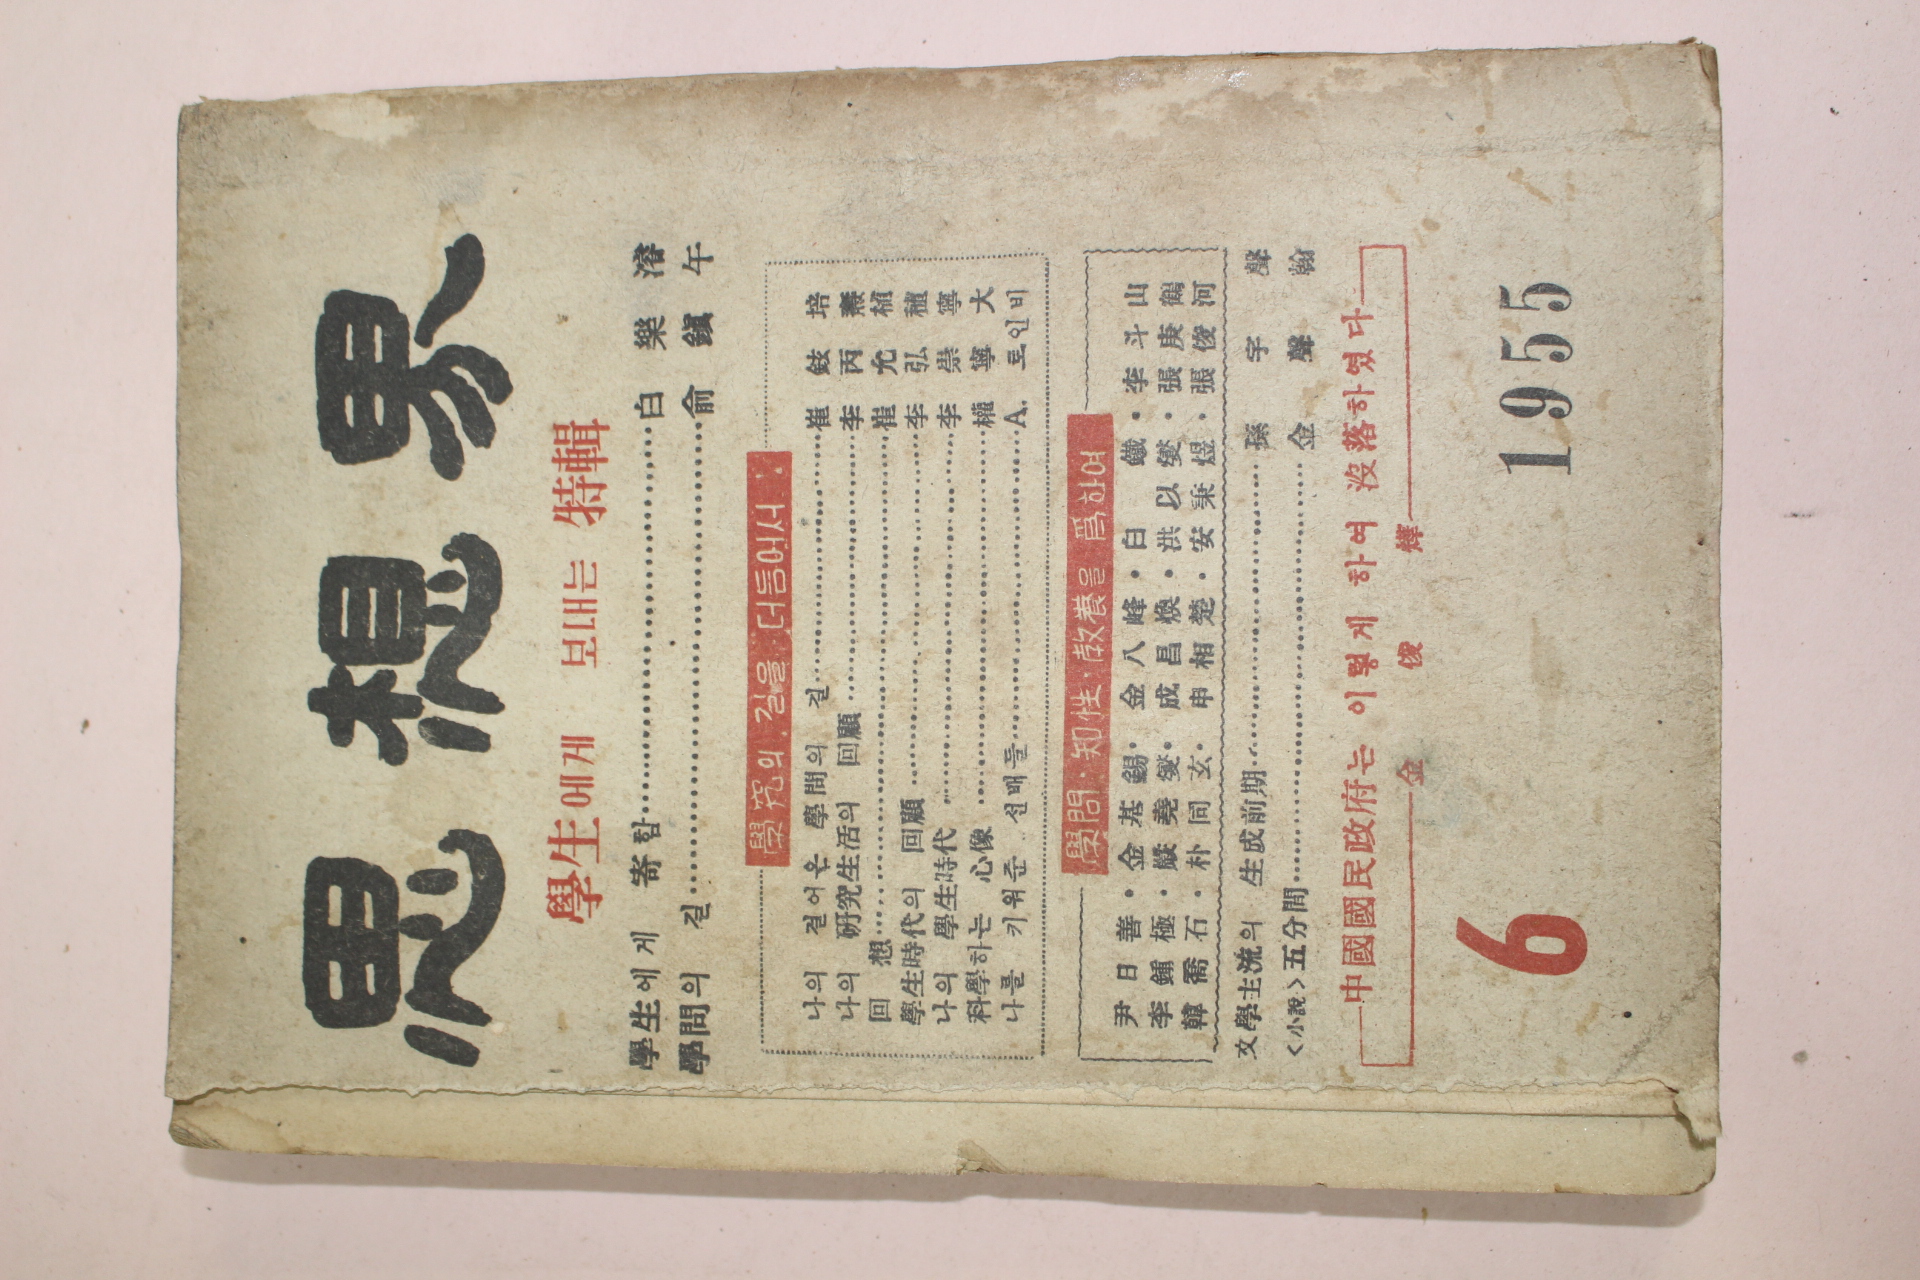 思想界
學生에게 보내는 特輯
學生에게 寄함 白樂濬
學問의 길 兪鎭午
學究의 길을 더듬어서
나의 걸어온 學問의 길 崔鉉培
나의 硏究生活의 回顧 李丙燾
回想 崔允植
學生時代의 回顧 李弘稙
나의 學生時代 李崇寧
科學하는 心像 權寧大
나를 키워준 선배들 A. 토인비
學問·知性·敎養을 爲하여
尹日善·金基錫·金八峰·白鐵·李斗山
李鍾極·嚴堯燮·成昌煥·洪以燮·張庚鶴
韓喬石·朴同玄·申相楚·安秉煜·張俊河
文學主流의 生成前期 孫宇聲
<小說>五分間 金聲翰
中國國民政府는 이렇게 하여 沒落하였다
金俊燁
6 1955